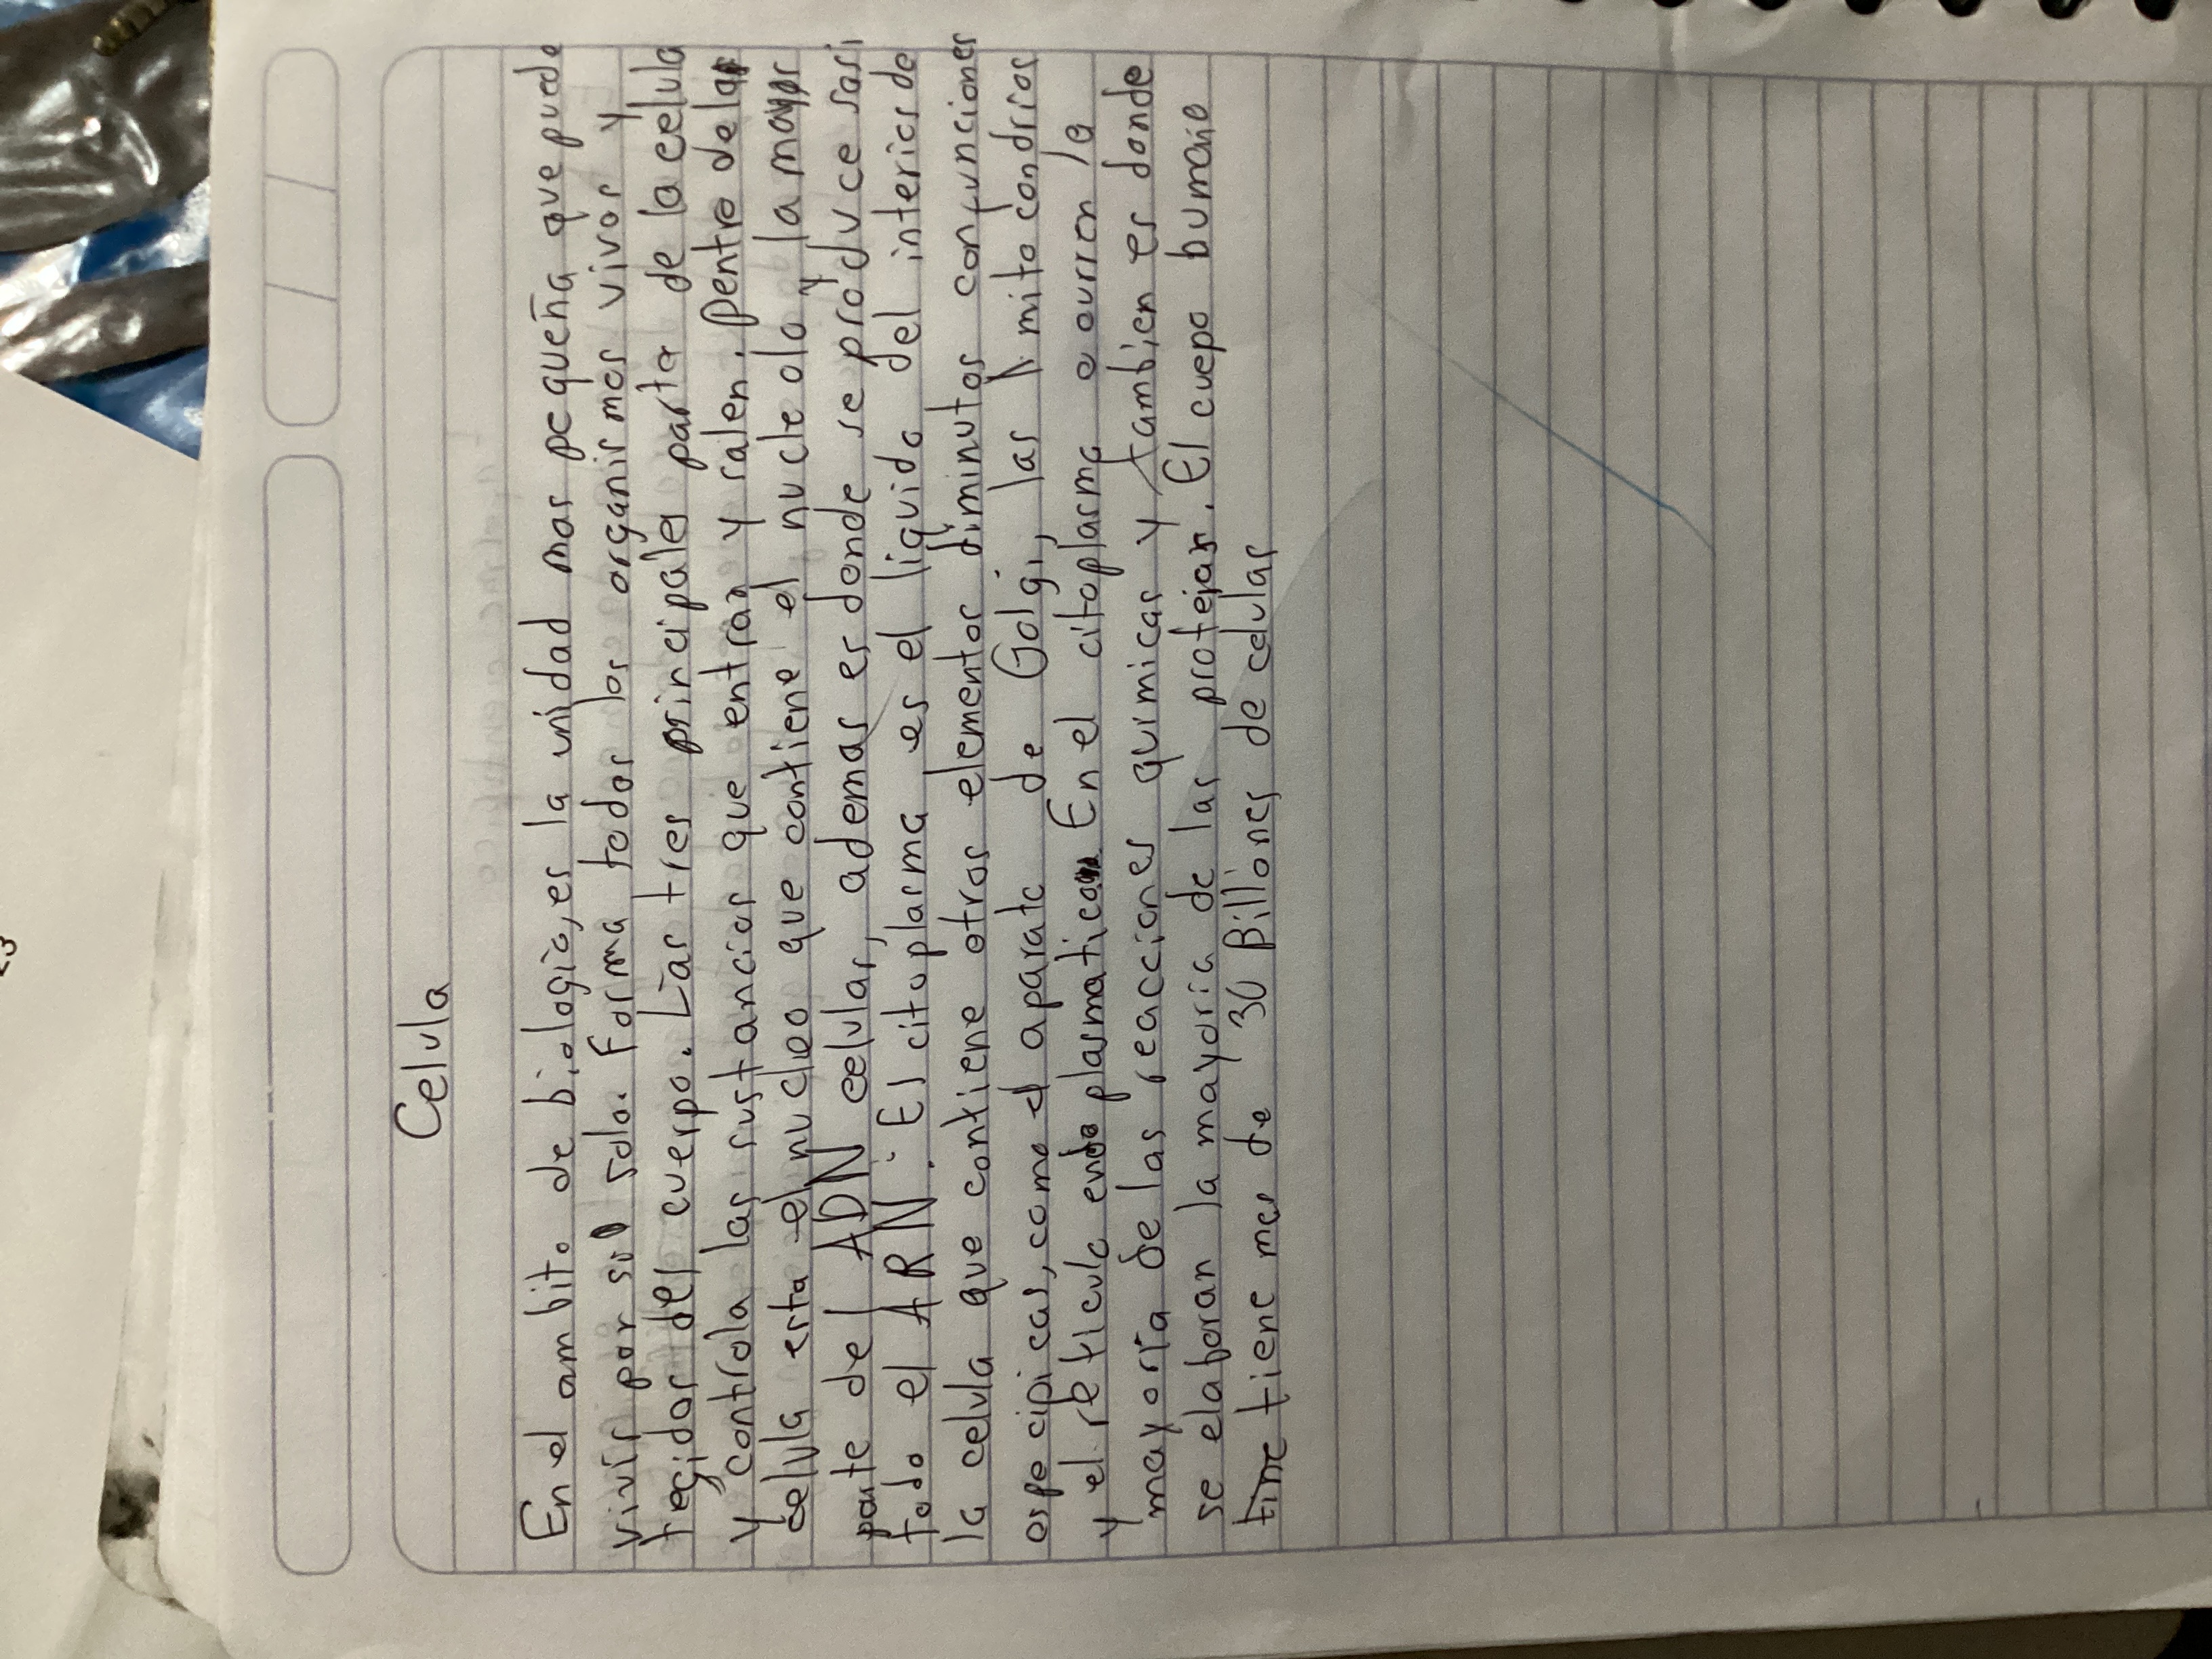 Celula
En el ambito de biologia, es la unidad mas pequeña que puede
vivir por si solo. Forma todos los organismos vivos y
tegidos del cuerpo. Las tres principales parte de la celula
y controla las sustancias que entran y salen. Dentro de la
celula esta el nucleo que contiene el nucleolo y la mayor
parte del ADN celular, ademas es donde se produce casi
todo el ARN. El citoplasma es el liquido del interior de
la celula que contiene otros elementos diminutos con funciones
especificas, como el aparato de Golgi, las mitocondrias
y el reticulo endoplasmatico. En el citoplasma ocurren la
mayoria de las reacciones quimicas y tambien es donde
se elaboran la mayoria de las protejas. El cuepo humano
tine tiene mas de 30 Billones de celulas